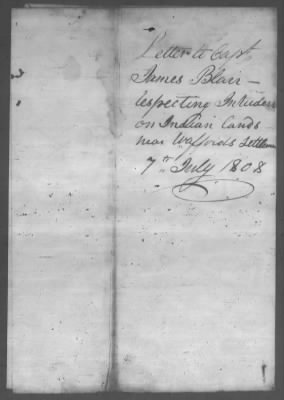 Letter to Capt.
James Blair —
respecting Intruders
on Indian Lands
near Waffords Settlem
7th July 1808